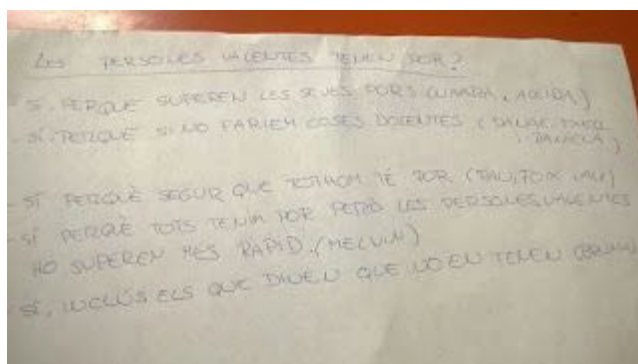 LES PERSONES VALENTES TENEN POR?
- SÍ, PERQUÈ SUPEREN LES SEVES PORS
- SÍ PERQUÈ SI NO FARIEM COSES DOLENTES
- SÍ PERQUÈ SEGUR QUE TOTHOM TÉ POR
- SÍ PERQUÈ TOTS TENIM POR PERÒ LES PERSONES VALENTES
HO SUPEREN MÉS RÀPID. (MELVIN)
- SÍ, INCLÚS ELS QUE DIUEN QUE NO EN TENEN